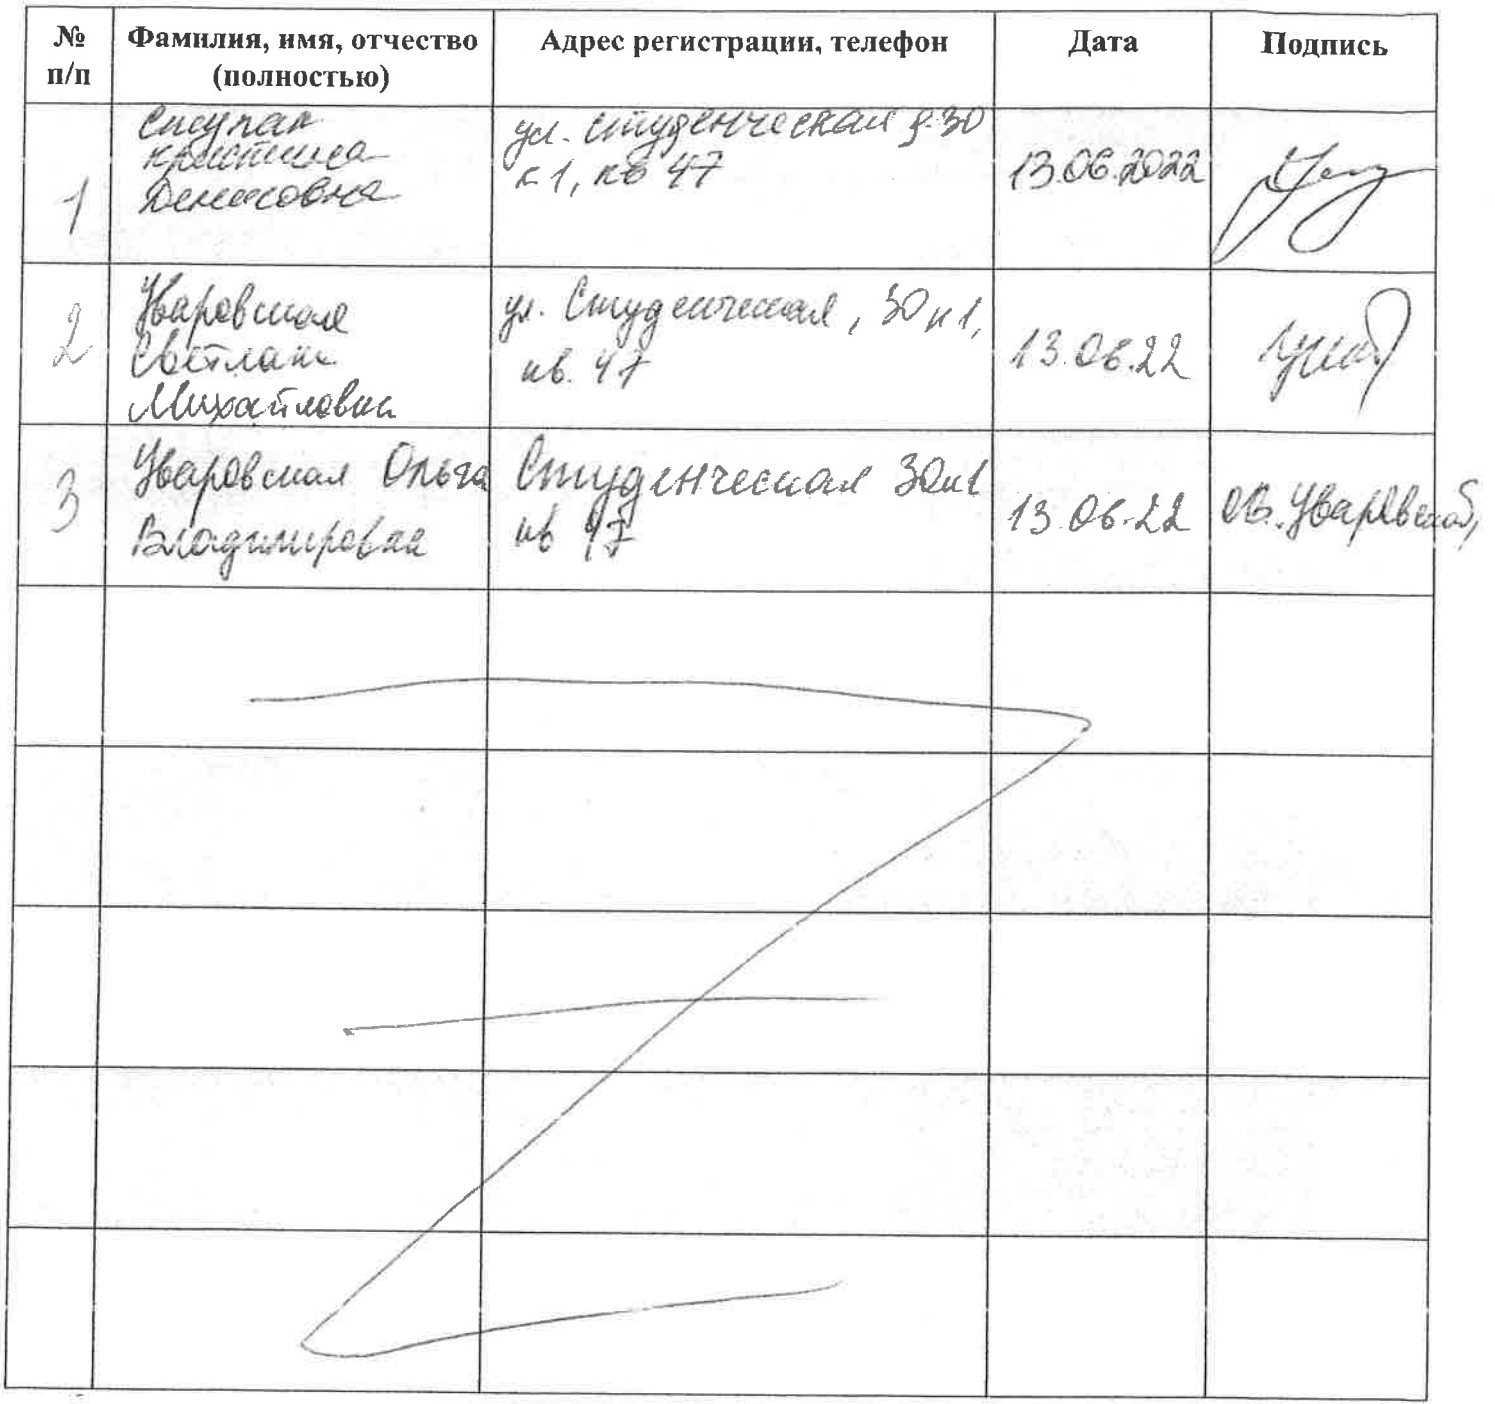 № п/п
Фамилия, имя, отчество (полностью)
Адрес регистрации, телефон
Дата
Подпись
1
Ступак
Кристина
Денисовна
ул. Студенческая д.30
к1, кв 47
13.06.2022
2
Уваровская
Светлана
Михайловна
ул. Студенческая, 30 к1,
кв. 47
13.06.22
3
Уваровская Ольга
Владимировна
Студенческая 30к1
кв 47
13.06.22